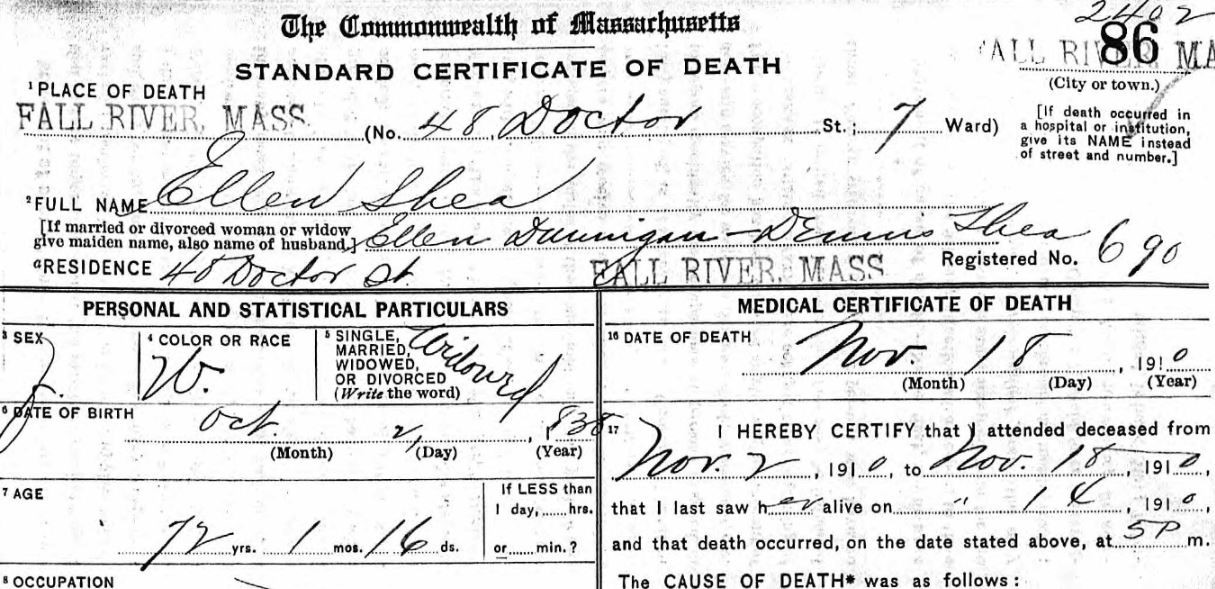 The Commonwealth of Massachusetts
2402
86
STANDARD CERTIFICATE OF DEATH
FALL RIVER, MA
(City or town.)
1 PLACE OF DEATH
FALL RIVER, MASS.
(No. 48 Doctor St.; 7 Ward)
[If death occurred in
a hospital or institution,
give its NAME instead
of street and number.]
2 FULL NAME Ellen Shea
[If married or divorced woman or widow
give maiden name, also name of husband.] Ellen Dunnigan - Dennis Shea
a RESIDENCE 48 Doctor St. FALL RIVER, MASS Registered No. 690
PERSONAL AND STATISTICAL PARTICULARS
3 SEX
f.
4 COLOR OR RACE
W.
5 SINGLE,
MARRIED,
WIDOWED,
OR DIVORCED
(Write the word)
Widowed
6 DATE OF BIRTH
Oct. 2, 1838
(Month) (Day) (Year)
7 AGE
72 yrs. 1 mos. 16 ds.
If LESS than
1 day,......hrs.
or......min.?
8 OCCUPATION
MEDICAL CERTIFICATE OF DEATH
16 DATE OF DEATH
Nov. 18, 1910
(Month) (Day) (Year)
17 I HEREBY CERTIFY that I attended deceased from
Nov. 2, 1910, to Nov. 18, 1910,
that I last saw her alive on " 14, 1910,
and that death occurred, on the date stated above, at 5P m.
The CAUSE OF DEATH* was as follows: